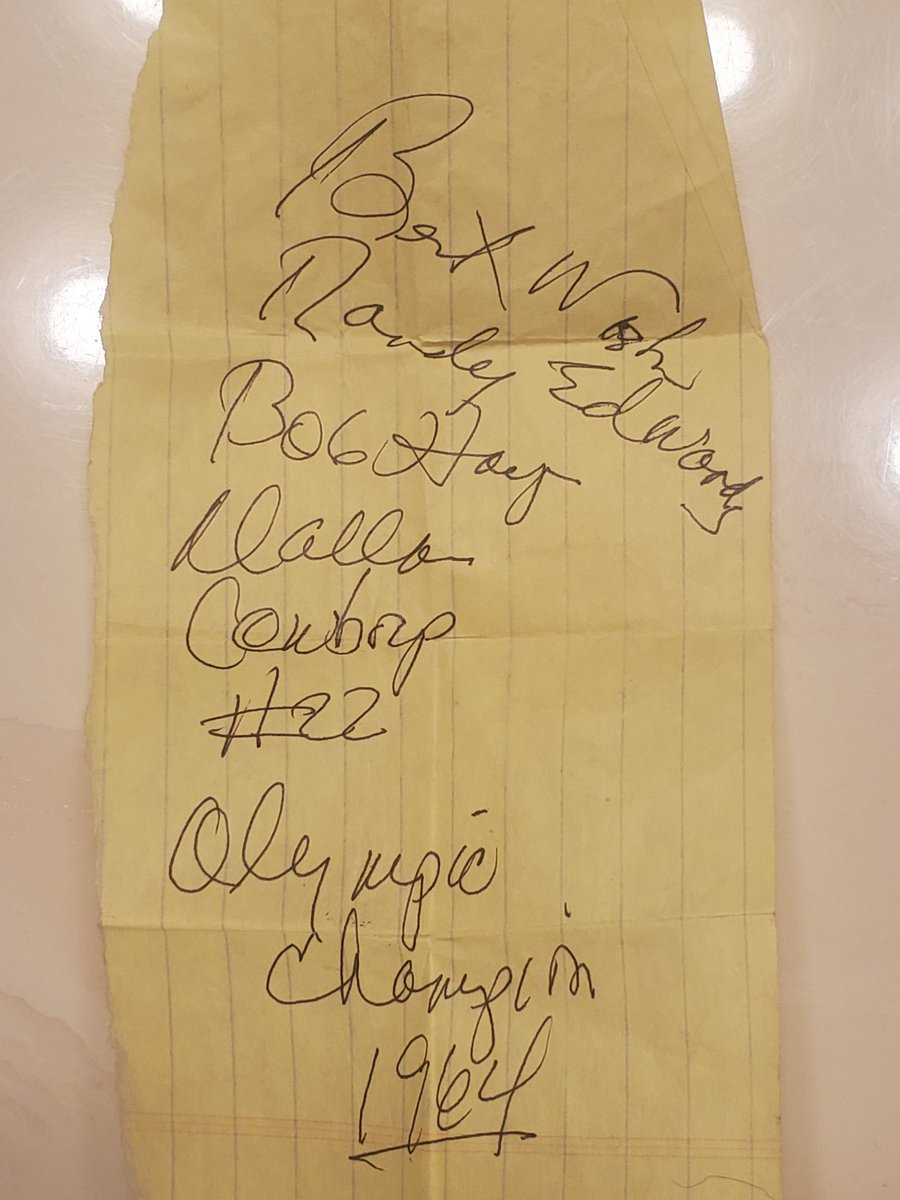 Best Wish
Randy Edwards
Bob Hayes
Dallas
Cowboys
#22
Olympic
Champion
1964